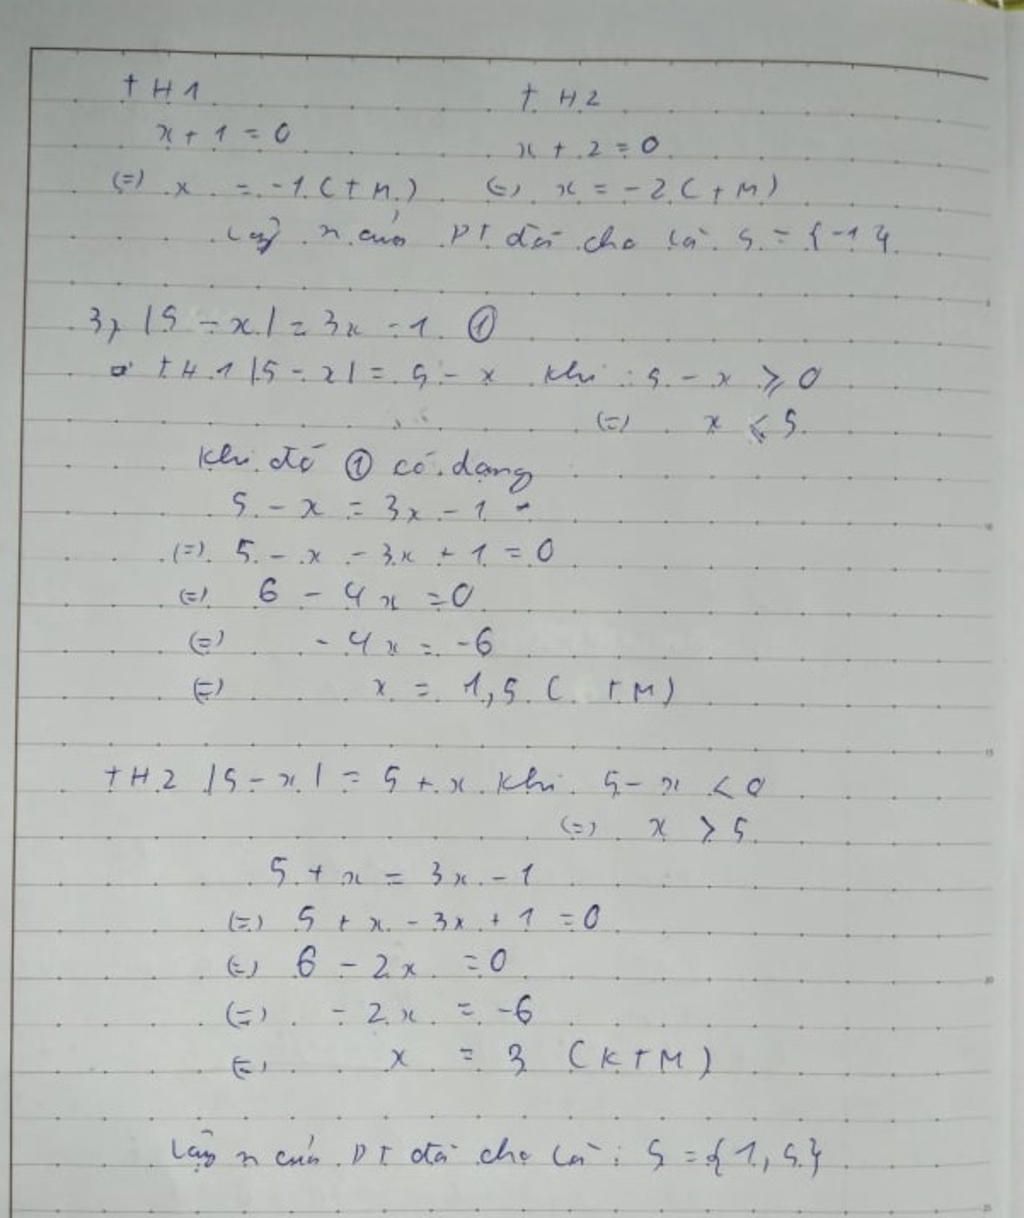 + H 1 + H 2
x + 1 = 0 x + 2 = 0
(=) x = -1 (TM) (=) x = -2 (TM)
Vậy n của PT đã cho là S = {-1}
3, |5 - x| = 3x - 1 ①
TH1 |5 - x| = 5 - x khi: 5 - x ⩾ 0
(=) x ⩽ 5
Khi đó ① có dạng
5 - x = 3x - 1
(=) 5 - x - 3x + 1 = 0
(=) 6 - 4x = 0
(=) - 4x = -6
(=) x = 1,5 (TM)
TH2 |5 - x| = 5 + x khi 5 - x < 0
(=) x > 5
5 + x = 3x - 1
(=) 5 + x - 3x + 1 = 0
(=) 6 - 2x = 0
(=) - 2x = -6
(=) x = 3 (KTM)
Vậy n của PT đã cho là: S = {1,5}